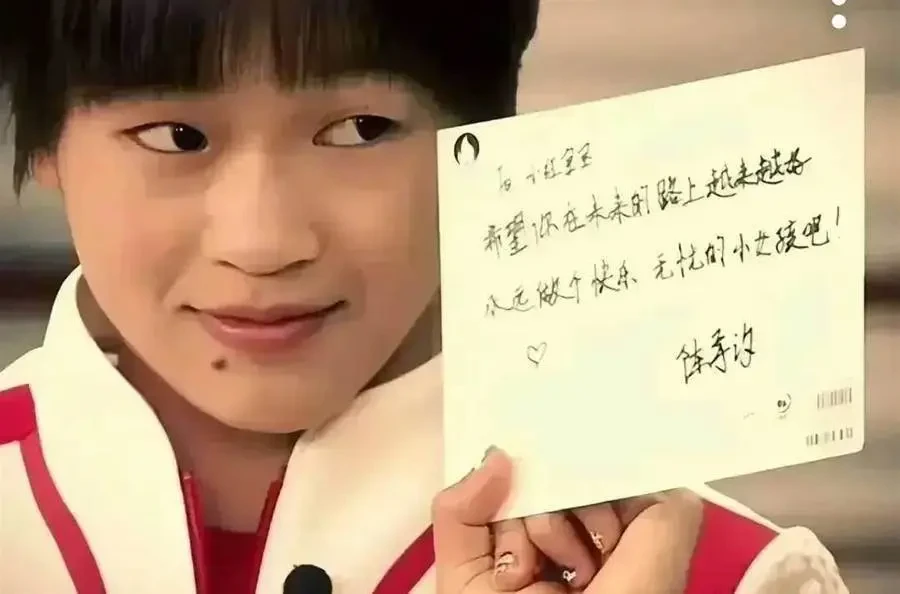 To 小红宝宝
希望你在未来的路上越来越好
永远做个快乐 无忧的小女孩吧!
♡